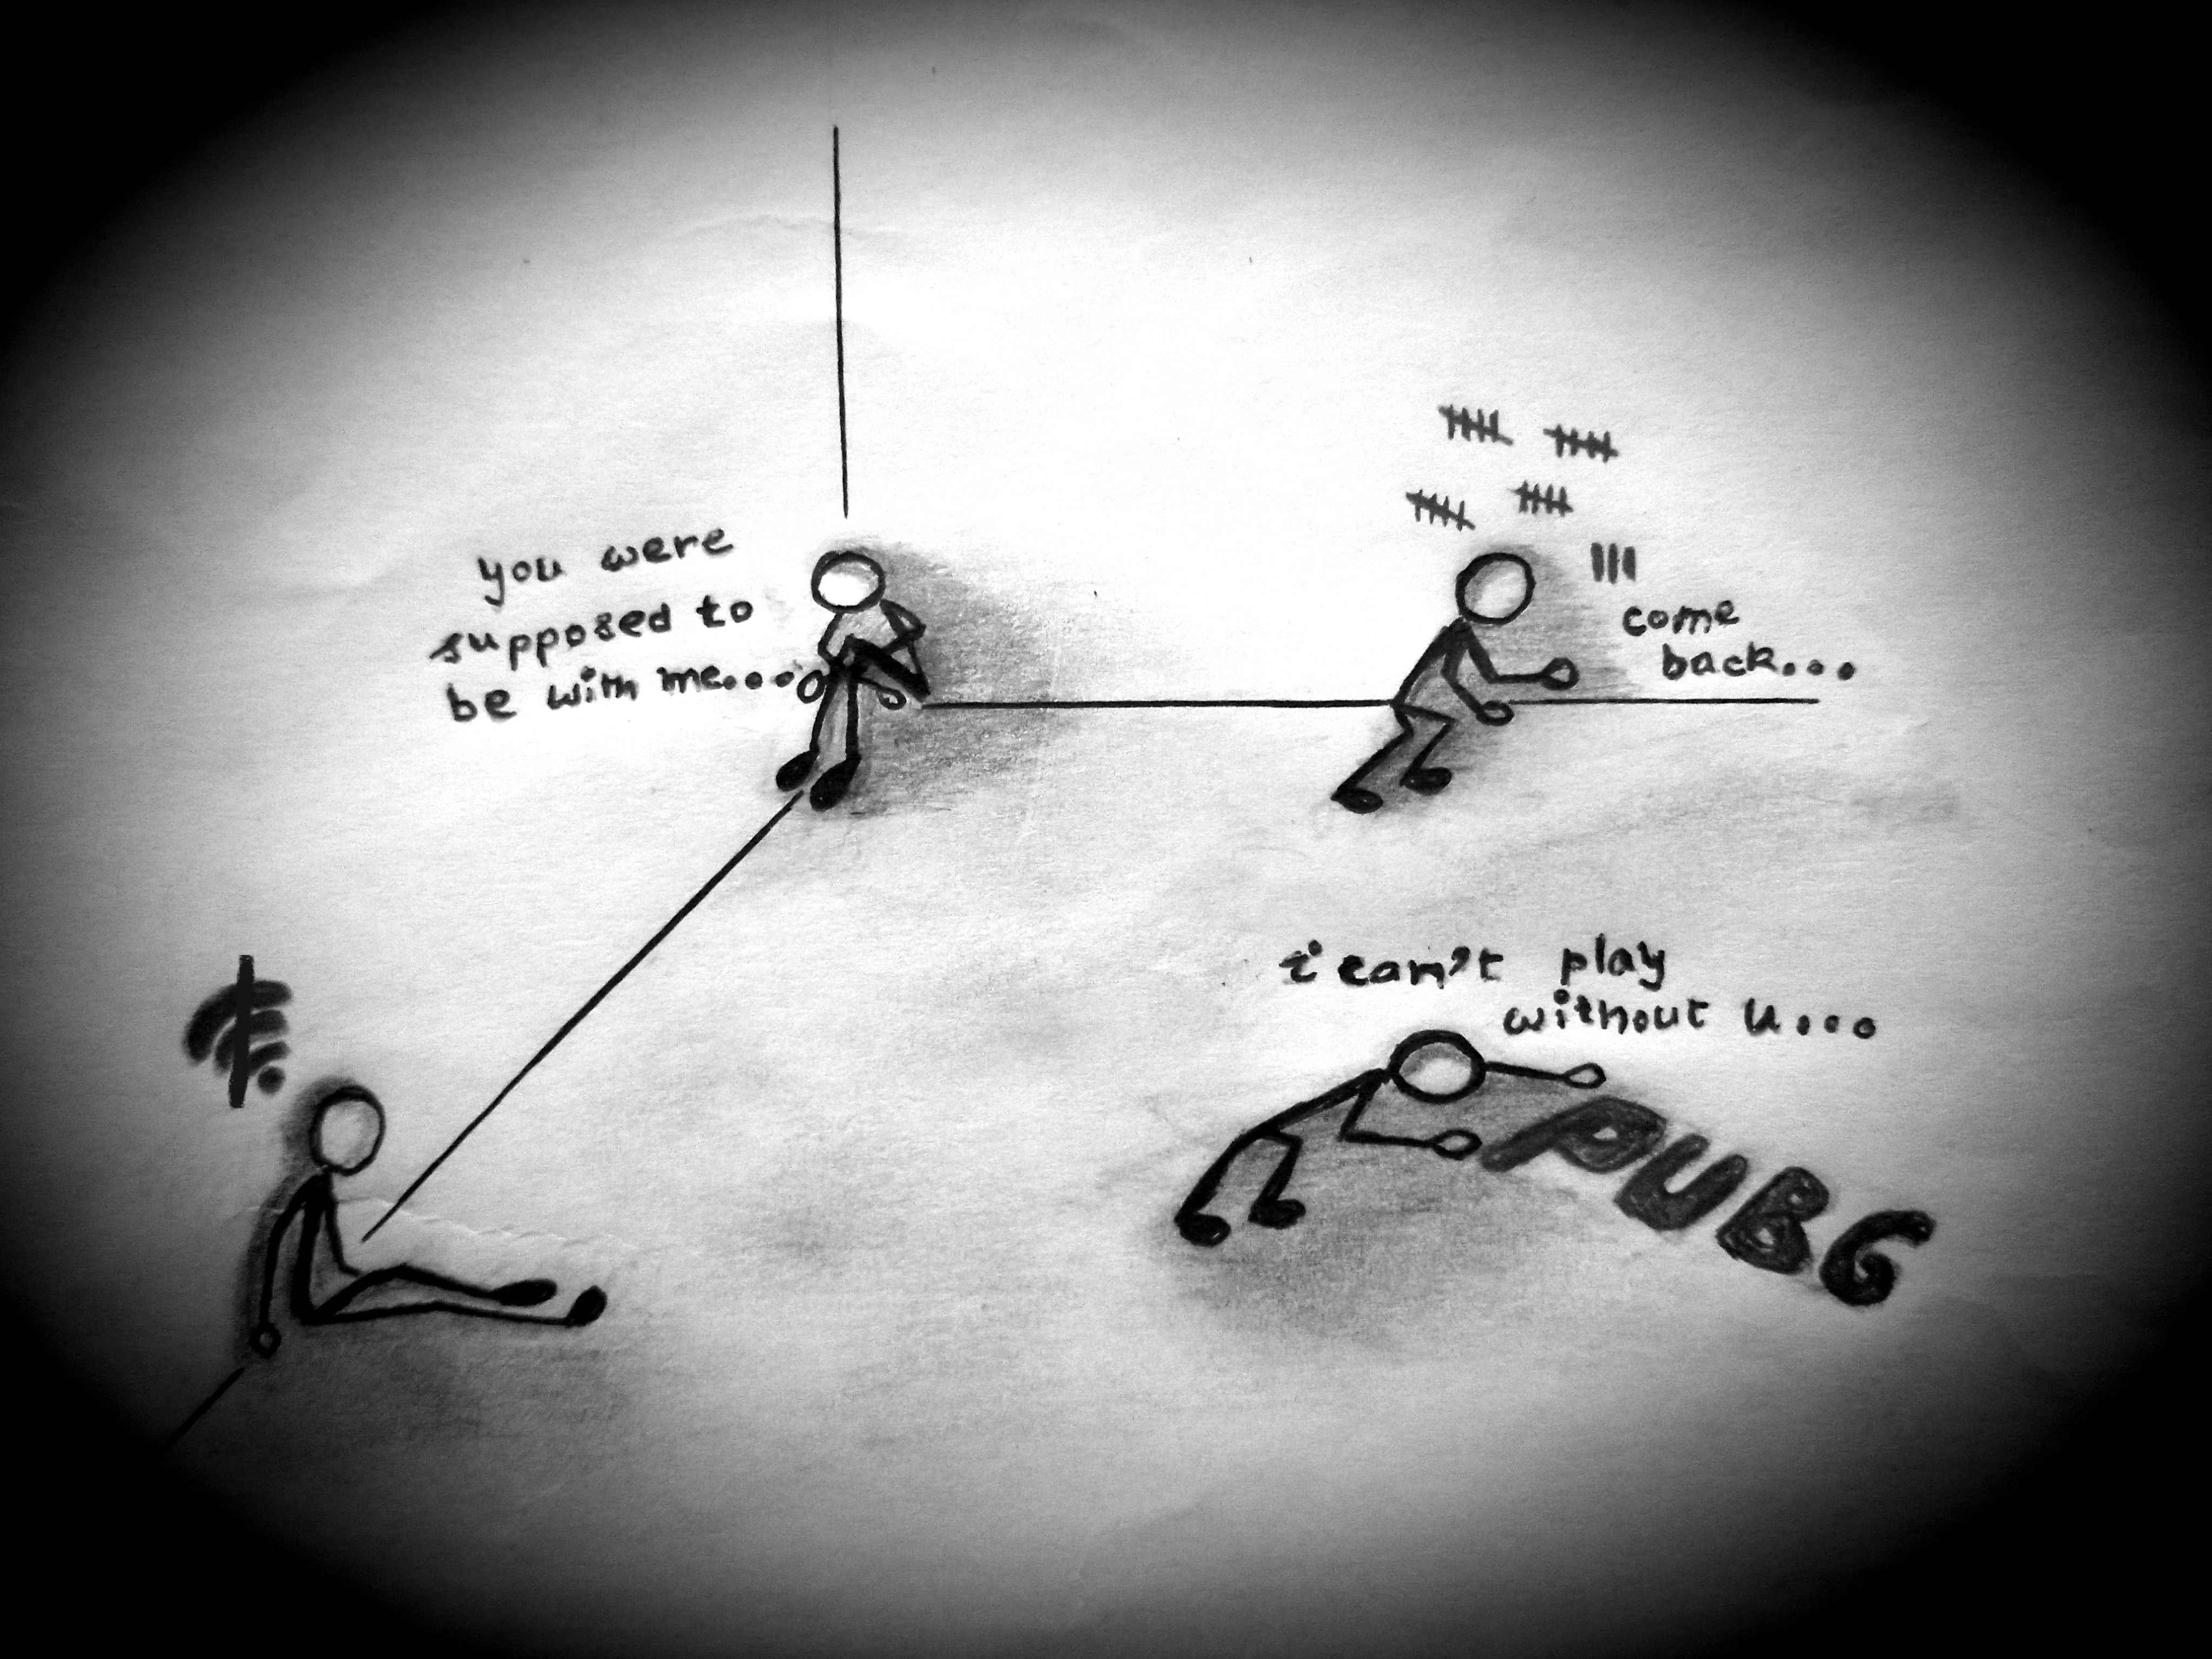 you were
supposed to
be with me...
come
back...
i can't play
without u...
PUBG